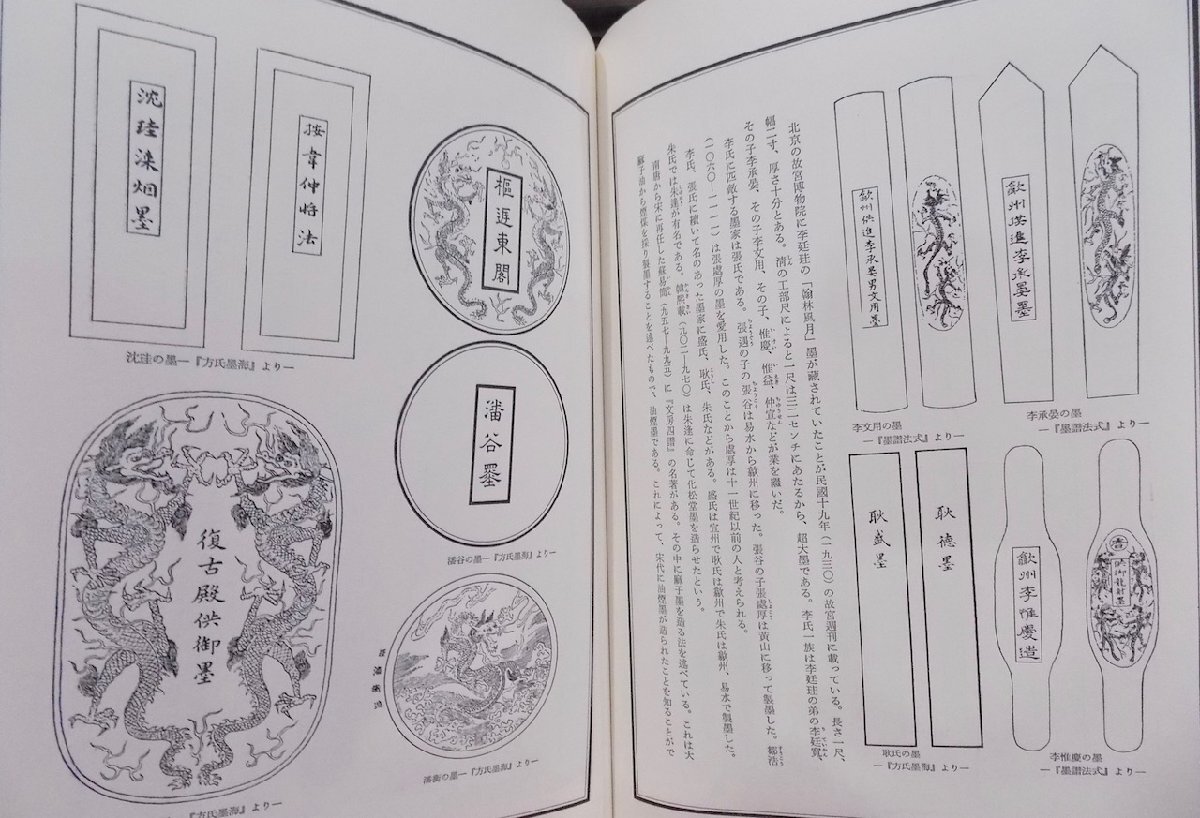 歙州供進李承晏墨
歙州供進李承晏男文用墨
李承晏の墨
―『墨譜法式』より―
李文用の墨
―『墨譜法式』より―
歙州李惟慶造
耿德墨
耿盛墨
李惟慶の墨
―『墨譜法式』より―
耿氏の墨
―『方氏墨海』より―
北京の故宮博物院に李廷珪の「翰林風月」墨が藏されていたことが民國十九年（一九三〇）の故宮週刊に載っている。長さ一尺、
幅二寸、厚さ十分とある。清の工部尺によると一尺は三一センチにあたるから、超大墨である。李氏一族は李廷珪の弟の李廷寬、
その子李承晏、その子李文用、その子、惟慶、惟益、仲宣などが業を繼いだ。
李氏に匹敵する墨家は張氏である。張遇の子の張谷は易水から歙州に移った。張谷の子張處厚は黄山に移って製墨した。鄒浩
（一〇六〇―一一一一）は張處厚の墨を愛用した。このことから處厚は十一世紀以前の人と考えられる。
李氏、張氏に續いて名のあった墨家に盛氏、耿氏、朱氏などがある。盛氏は宣州で耿氏は歙州で朱氏は歙州、易水で製墨した。
朱氏では朱逢が有名である。韓熙載（九〇二―九七〇）は朱逢に命じて化松堂墨を造らせたという。
南唐から宋に再任した蘇易簡（九五七―九九五）に『文房四譜』の名著がある。その中に麻子墨を造る法を述べている。これは大
麻子油から煙煤を採り製墨することを述べたもので、油煙墨である。これによって、宋代に油煙墨が造られたことを知ることがで
樞廷東閣
按韋仲將法
沈珪漆烟墨
沈珪の墨―『方氏墨海』より―
潘谷墨
潘谷の墨―『方氏墨海』より―
復古殿供御墨
『方氏墨海』より―
の墨―『方氏墨海』より―